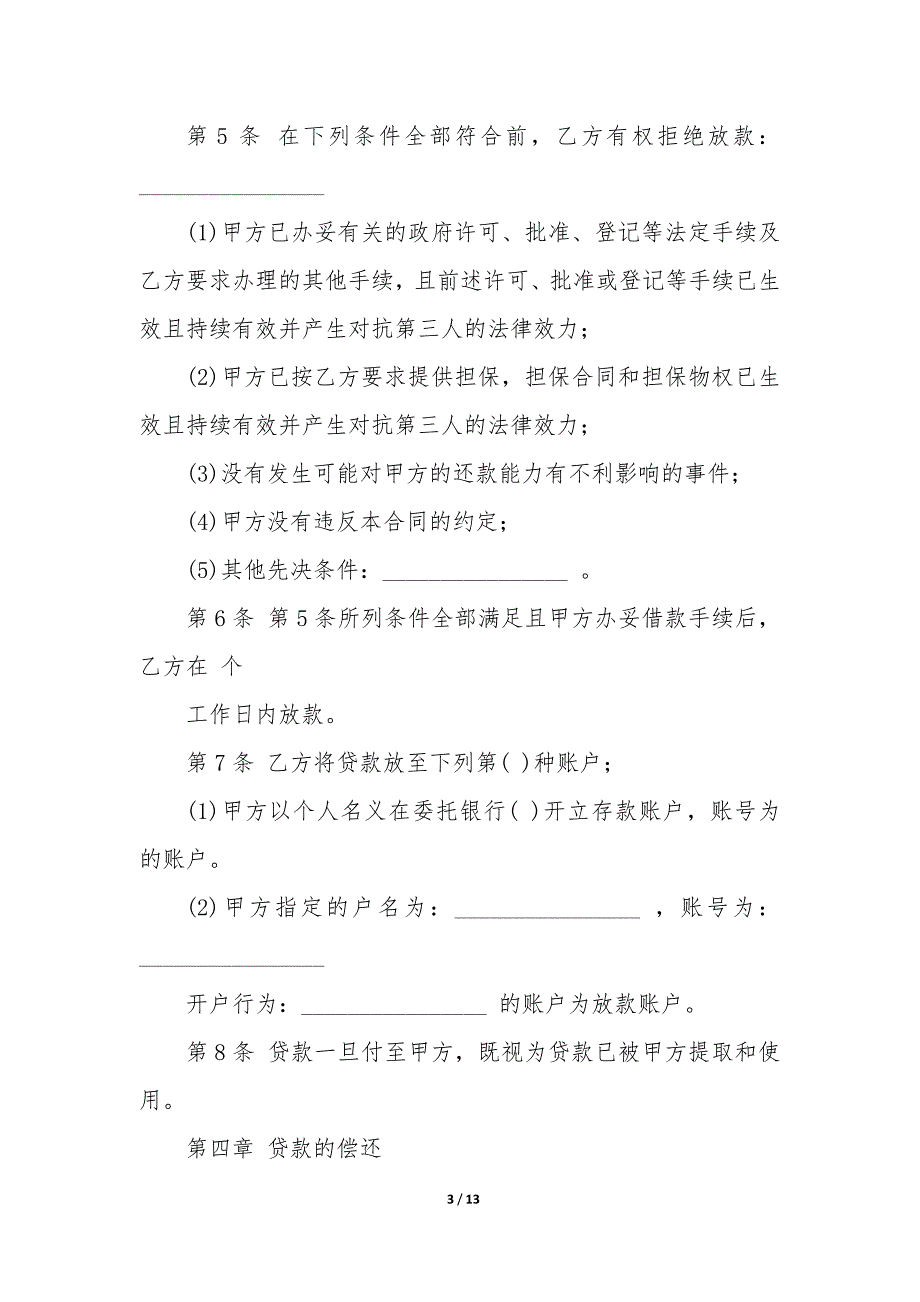 第5条 在下列条件全部符合前，乙方有权拒绝放款：
________________
(1)甲方已办妥有关的政府许可、批准、登记等法定手续及
乙方要求办理的其他手续，且前述许可、批准或登记等手续已生
效且持续有效并产生对抗第三人的法律效力；
(2)甲方已按乙方要求提供担保，担保合同和担保物权已生
效且持续有效并产生对抗第三人的法律效力；
(3)没有发生可能对甲方的还款能力有不利影响的事件；
(4)甲方没有违反本合同的约定；
(5)其他先决条件：________________ 。
第6条 第5条所列条件全部满足且甲方办妥借款手续后，
乙方在 个
工作日内放款。
第7条 乙方将贷款放至下列第( )种账户；
(1)甲方以个人名义在委托银行( )开立存款账户，账号为
的账户。
(2)甲方指定的户名为：________________ ，账号为：
________________
开户行为：________________ 的账户为放款账户。
第8条 贷款一旦付至甲方，既视为贷款已被甲方提取和使
用。
第四章 贷款的偿还
3 / 13